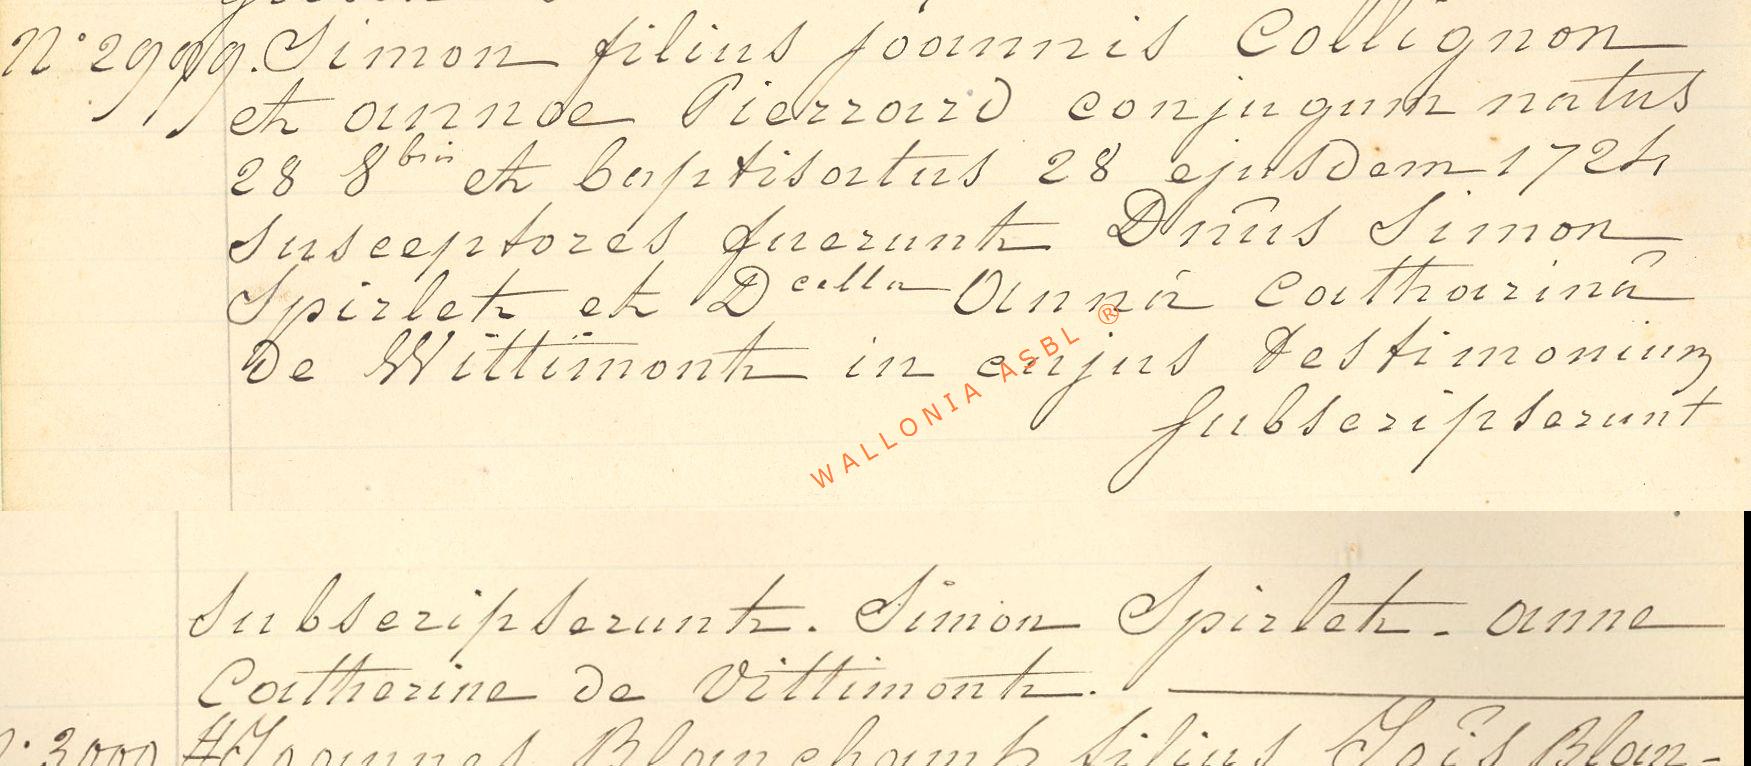 N° 2999. Simon filius Joannis Collignon
et annae Pierrard conjugum natus
28 8bris et baptisatus 28 ejusdem 1724
susceptores fuerunt Dnûs Simon
Spirlet et Dcella Anna Catharinâ
De Wittimont in cujus testimonium
subscripserunt
WALLONIA ASBL ®
subscripserunt. Simon Spirlet. anne
Catherine de Vittimont.
3000 # Joannes Blanchamp filius Joîs Blan-